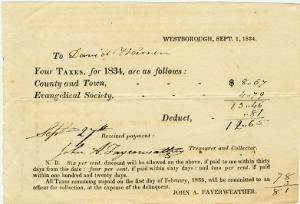 WESTBOROUGH, SEPT. 1, 1834.
To David Warren
Your TAXES, for 1834, are as follows:
County and Town, $ 8.67
Evangelical Society, 4.79
13.46
Deduct, .81
12.65
Sept 27th Received payment:
Jno A. Fayerweather Treasurer and Collector.
N. B. Six per cent. discount will be allowed on the above, if paid to me within thirty
days from this date: four per cent. if paid within sixty days; and two per cent. if paid within
one hundred and twenty days.
All Taxes remaining unpaid on the first day of February, 1835, will be committed to an
officer for collection, at the expense of the delinquent.
JOHN A. FAYERWEATHER.
78
3
81